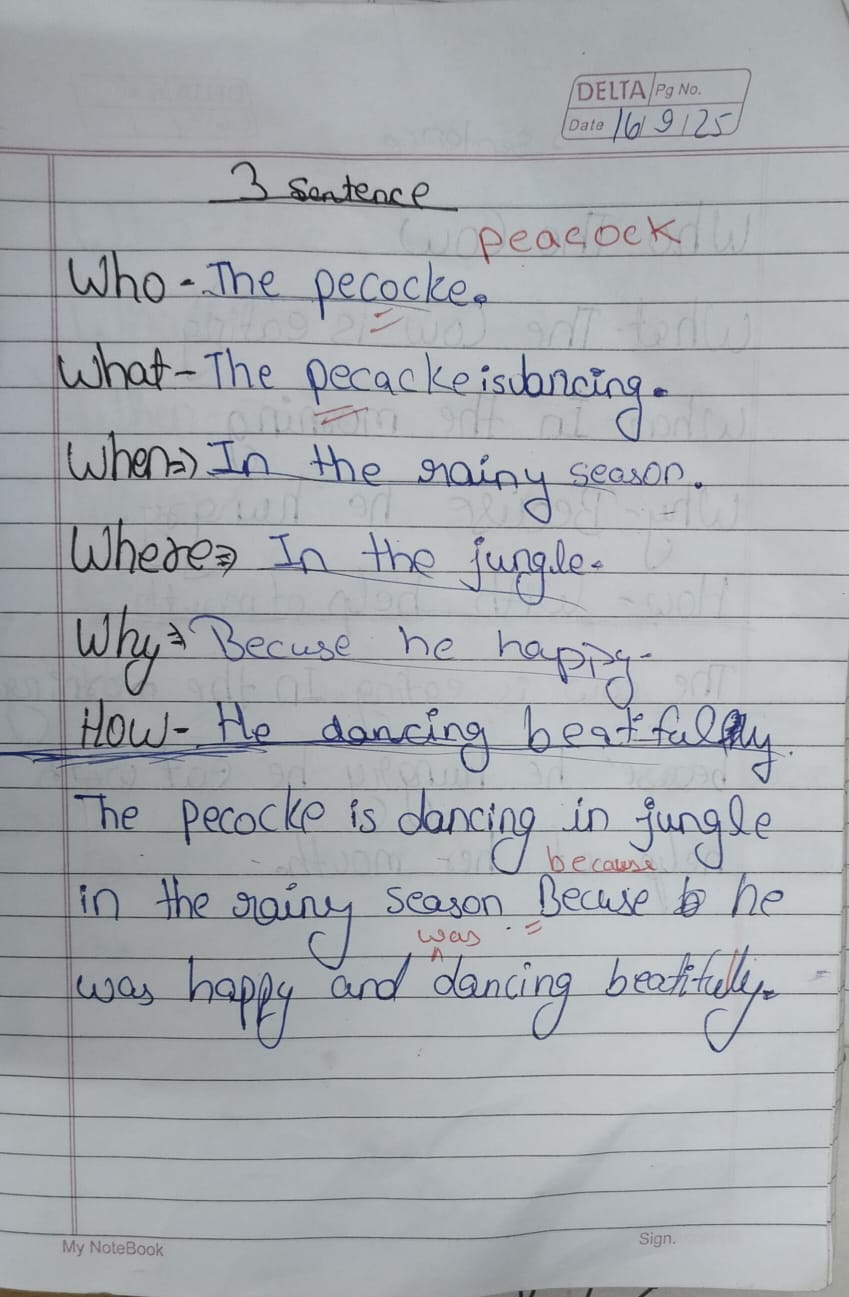 DELTA Pg No.
Date 16/9/25
3 Sentence
peacock
Who - The pecocke.
What - The pecacke is dancing.
When => In the rainy season.
Where => In the jungle.
Why => Becuse he happy.
How - He dancing beatifully.
The pecocke is dancing in jungle
because
in the rainy season Becuse he
was
was happy and ^ dancing beatifully.
My NoteBook
Sign.